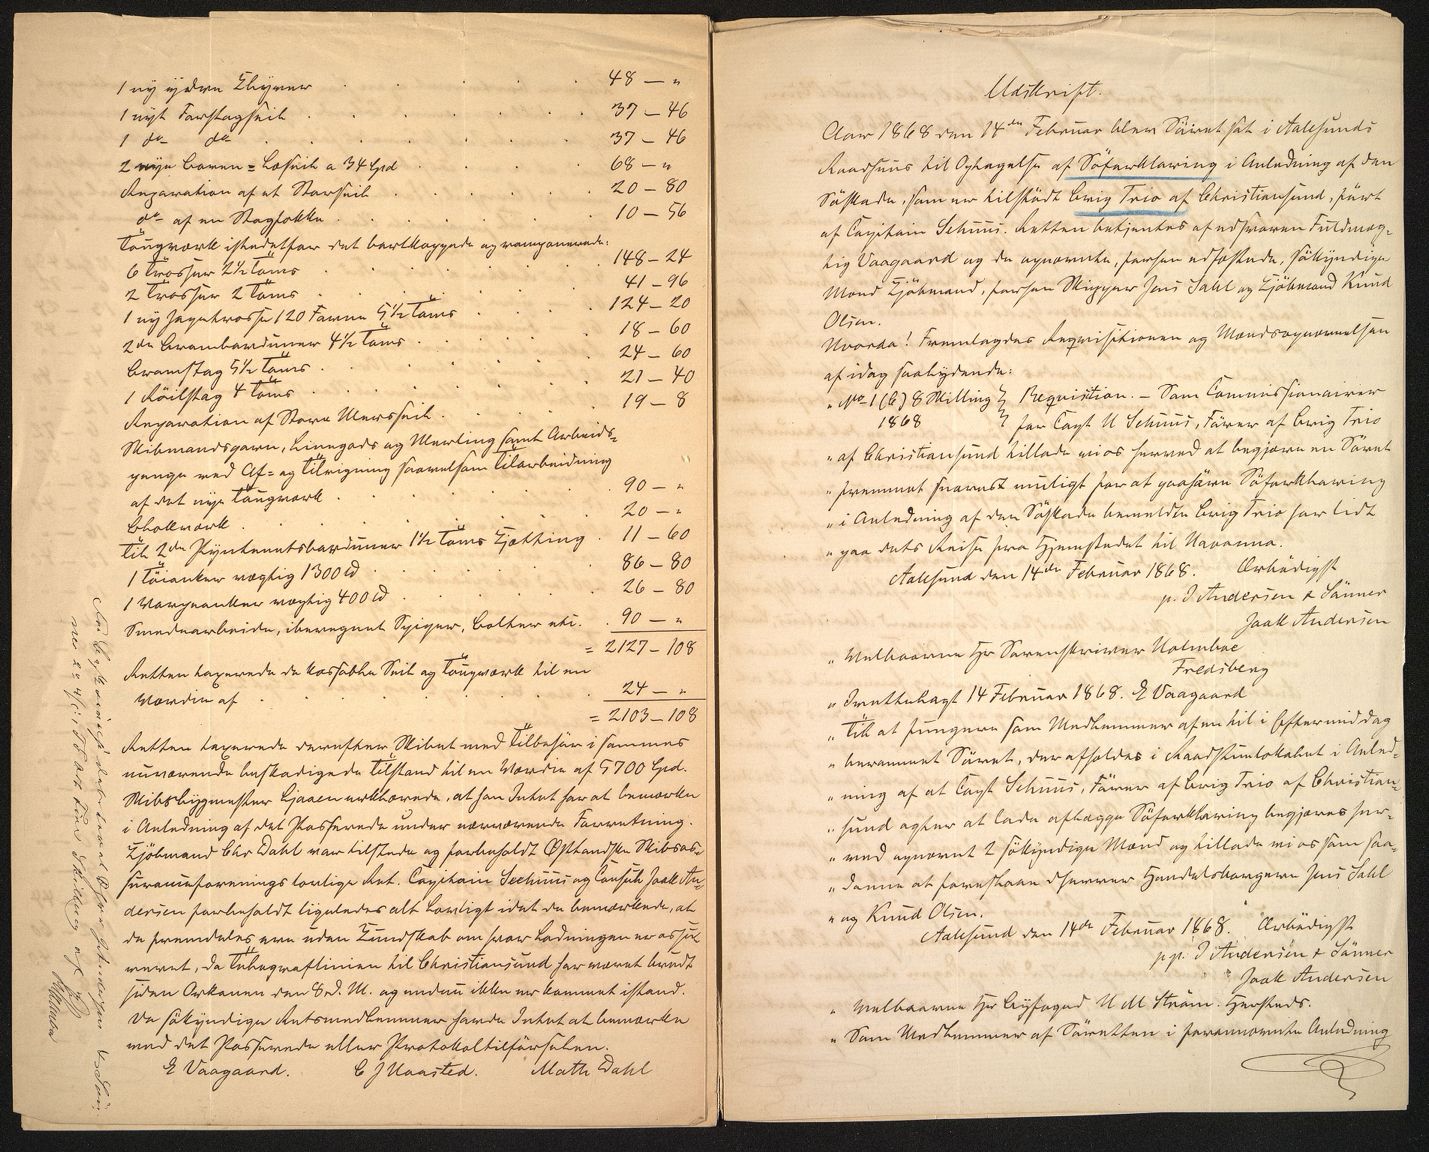 1 ny ydre Klyver . . . . 48 — „
1 nyt Forstagseil . . . . 37 — 46
1 do do . . . . 37 — 46
2 nye Boven = Læseil a 34 Spd . . . 68 — „
Reparation af et Storseil . . . . 20 — 80
do af en Stagfokke . . . . 10 — 56
Tougværk istedetfor det bortkappede og ramponerede:
6 Trosser 2½ Toms . . . . 148 — 24
2 Trosser 2 Toms . . . . 41 — 96
1 ny Jagetrosse 120 Favne 5½ Toms . . 124 — 20
2de Brambarduner 4½ Toms . . . 18 — 60
Bramstag 5½ Toms . . . . 24 — 60
1 Röilstag 4 Toms . . . . 21 — 40
Reparation af Store Mersseil . . . . 19 — 8
Skibmandsgarn, Linegods og Merling samt Arbeids-
penge ved Af- og Tilrigning saavelsom Tilarbeidning
af det nye Tougværk . . . . 90 — „
Blokværk . . . . 20 — „
Til 2de Pyntenetsbarduner 1½ Toms Kjætting . 11 — 60
1 Töianker vægtig 1300 ℔ . . . . 86 — 80
1 Varpeanker vægtig 400 ℔ . . . . 26 — 80
Smedearbeide, iberegnet Spiger, Bolter etc. . 90 — „
= 2127 — 108
Retten taxerede de kasserede Seil og Tougværk til en
Værdie af . . . . 24 — „
= 2103 — 108
Retten taxerede derefter Skibet med Tilbehör i sammes
nuværende beskadigede Tilstand til en Værdie af 5700 Spd.
Skibsbygmester Liaaen erklærede, at han Intet har at bemærke
i Anledning af det Passerede under nærværende Forretning.
Kjöbmand Chr Dahl var tilstede og forbeholdt Østlandske Skibsas-
suranceforenings lovlige Ret. Capitain Schuus og Consul Jaak An-
dersen forbeholdt ligeledes alt Lovligt idet de bemærkede, at
de fremdeles ere uden Kundskab om hvor Ladningen er assu-
reret, da Telegraflinien til Christiansund har været brudt
siden Orkanen den 8 d. M. og endnu ikke er kommet istand.
De sökyndige Retsmedlemmer havde Intet at bemærke
ved det Passerede eller Protokoltilförselen.
E Vaagaard. C J Naasted. Maths Dahl
Udskrift.
Aar 1868 den 14de Februar blev Söret sat i Aalesunds
Raadhuus til Optagelse af Söforklaring i Anledning af den
Söskade, som er tilstödt Brig Trio af Christiansund, fört
af Capitain Schuus. Retten betjentes af edsvoren Fuldmæg-
tig Vaagaard og de opnævnte, forhen edfæstede, sökyndige
Mænd Kjöbmand, forhen Skipper Jens Dahl og Kjöbmand Knud
Olsen.
Hvorda! Fremlagdes Requisitionen og Mandsopnævnelsen
af idag saalydende:
„ No 1 (b) 8 Skilling } Requisition. — Som Commissionairer
1868 } for Capt N Schuus, Förer af Brig Trio
„ af Christiansund tillade vi os herved at begjære en Söret
„ fremmet snarest muligt for at paahöre Söforklaring
„ i Anledning af den Söskade bemeldte Brig Trio har lidt
„ paa dets Reise fra Hjemstedet til Havanna.
Aalesund den 14de Februar 1868. Ærbödigst
p. J Andersen & Sönner
Jaak Andersen
„ Velbaarne Hr Sorenskriver Holmboe
Fredsberg
„ Fremlagt 14 Februar 1868. E Vaagaard
„ Til at fungere som Medlemmer af en til i Eftermiddag
„ berammet Söret, der afholdes i Raadstulokalet i Anled-
„ ning af at Capt Schuus, Förer af Brig Trio af Christian-
„ sund agter at lade aflægge Söforklaring begjæres her-
„ ved opnævnt 2 sökyndige Mænd og tillade vi os som saa-
„ danne at foreslaae dHerrer Handelsborgere Jens Dahl
„ og Knud Olsen.
Aalesund den 14de Februar 1868. Ærbödigst
pp. J Andersen & Sönner
Jaak Andersen
„ Velbaarne Hr Byfoged N M Ström. Hersteds.
„ Som Medlemmer af Söretten i forannævnte Anledning